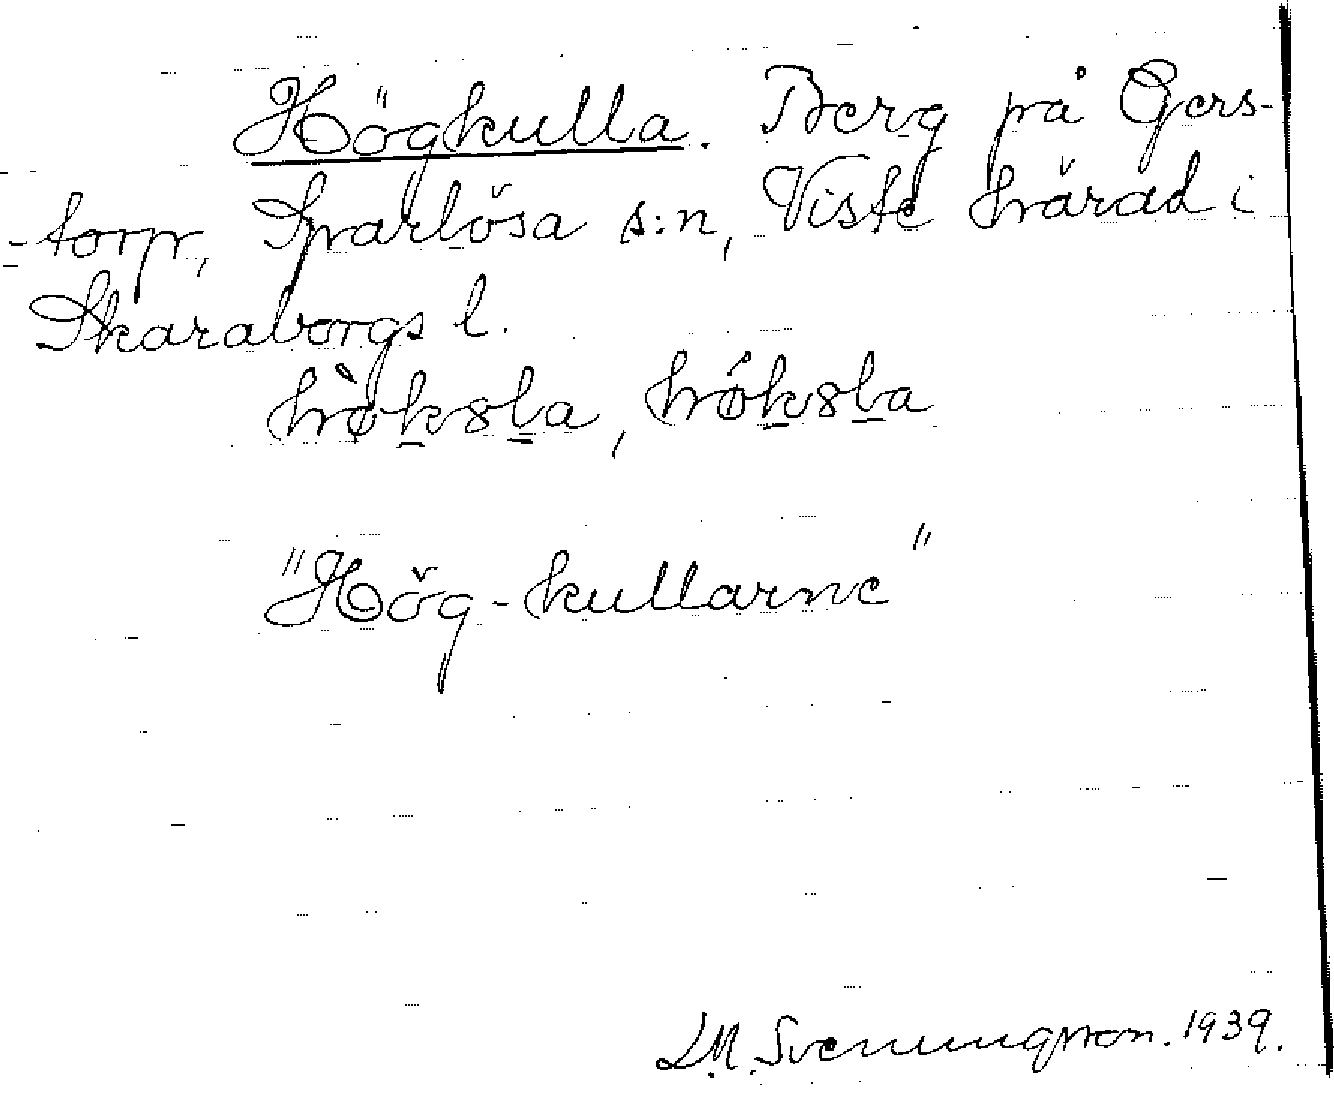 Högkulla. Berg på Gers-
-torp, Sparlösa s:n, Viste härad i
Skaraborgs l.
"Hög-kullarne"
L.M. Svenungsson. 1939.